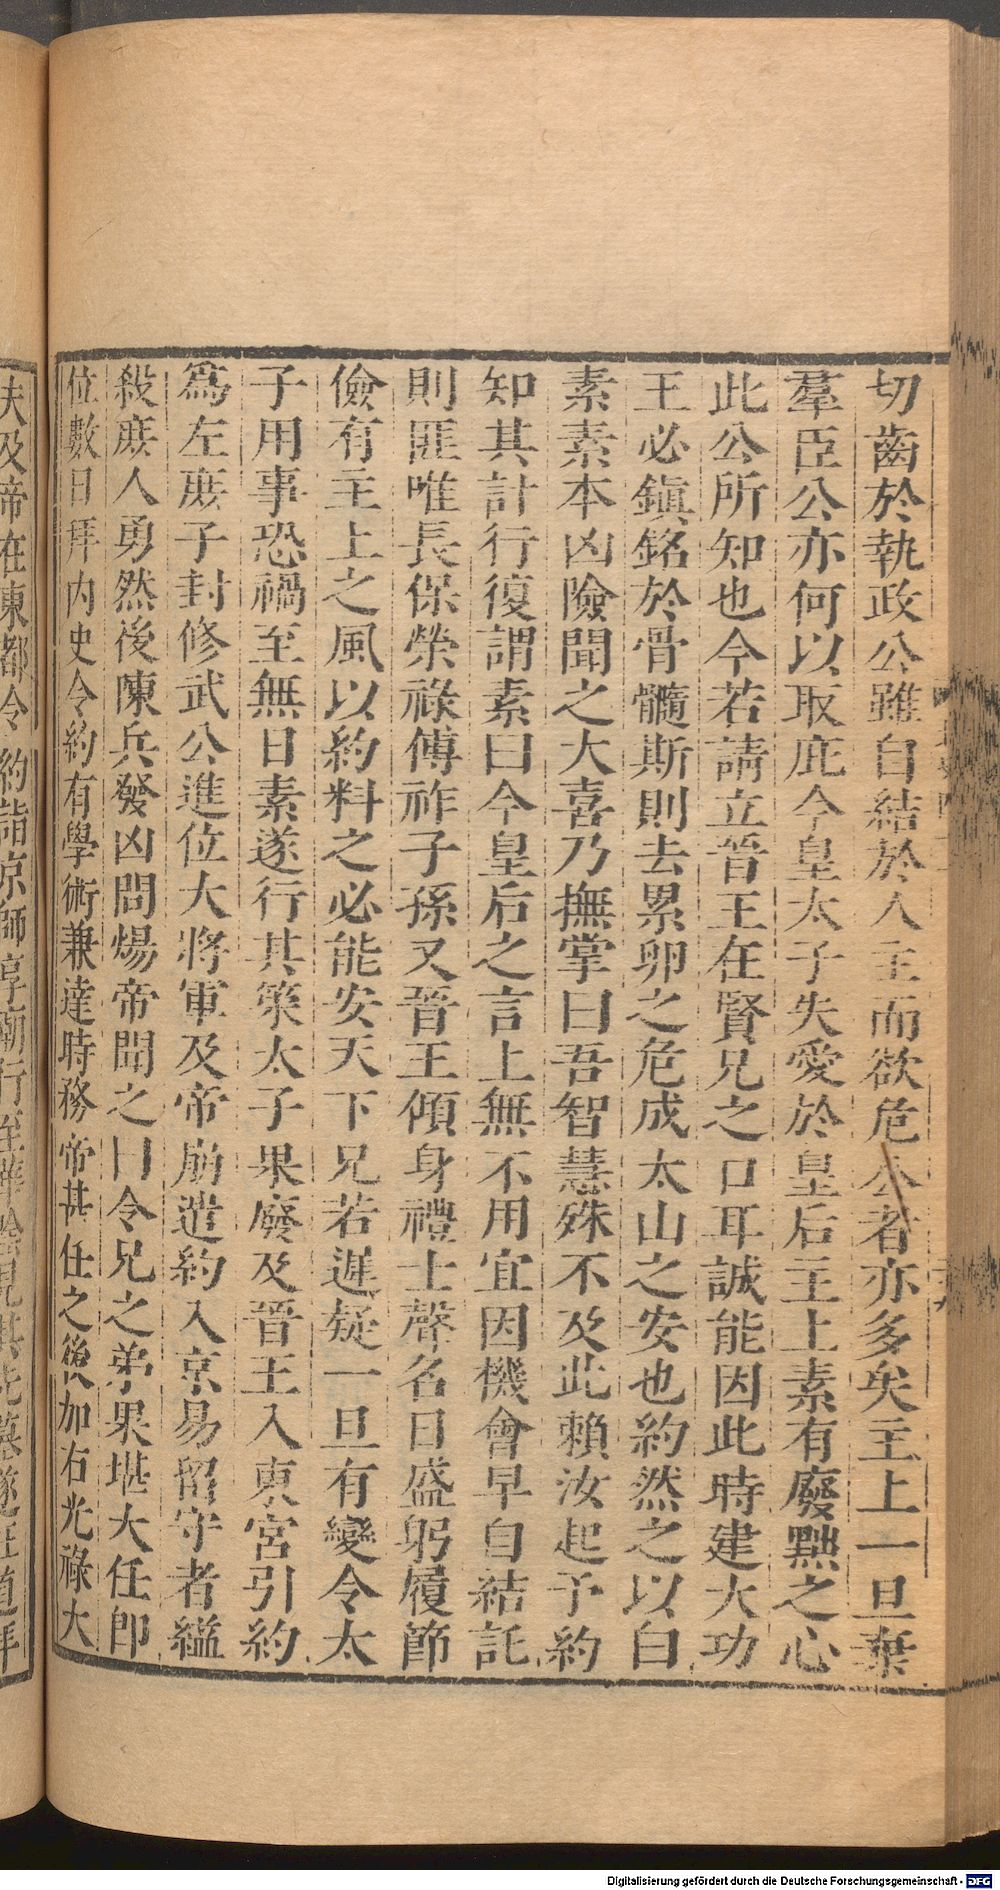 切齒於執政公雖自結於人主而欲危公者亦多矣主上一旦棄
羣臣公亦何以取庇今皇太子失愛於皇后主上素有廢黜之心
此公所知也今若請立晉王在賢兄之口耳誠能因此時建大功
王必鎭銘於骨髓斯則去累卵之危成太山之安也約然之以白
素素本凶險聞之大喜乃撫掌曰吾智慧殊不及此賴汝起予約
知其計行復謂素曰今皇后之言上無不用宜因機會早自結託
則匪唯長保榮祿傳祚子孫又晉王傾身禮士聲名日盛躬履節
儉有主上之風以約料之必能安天下兄若遲疑一旦有變令太
子用事恐禍至無日素遂行其策太子果廢及晉王入東宮引約
爲左庶子封修武公進位大將軍及帝崩遣約入京易留守者縊
殺庶人勇然後陳兵發凶問煬帝聞之曰令兄之弟果堪大任卽
位數日拜內史令約有學術兼達時務帝甚任之後加右光祿大
夫及帝在東都令約詣京師享廟行至華陰見其先墓遂枉道拜
Digitalisierung gefördert durch die Deutsche Forschungsgemeinschaft - DFG